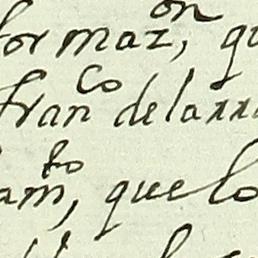 formaz^on, qu
Fran^co de la
am^to, que lo